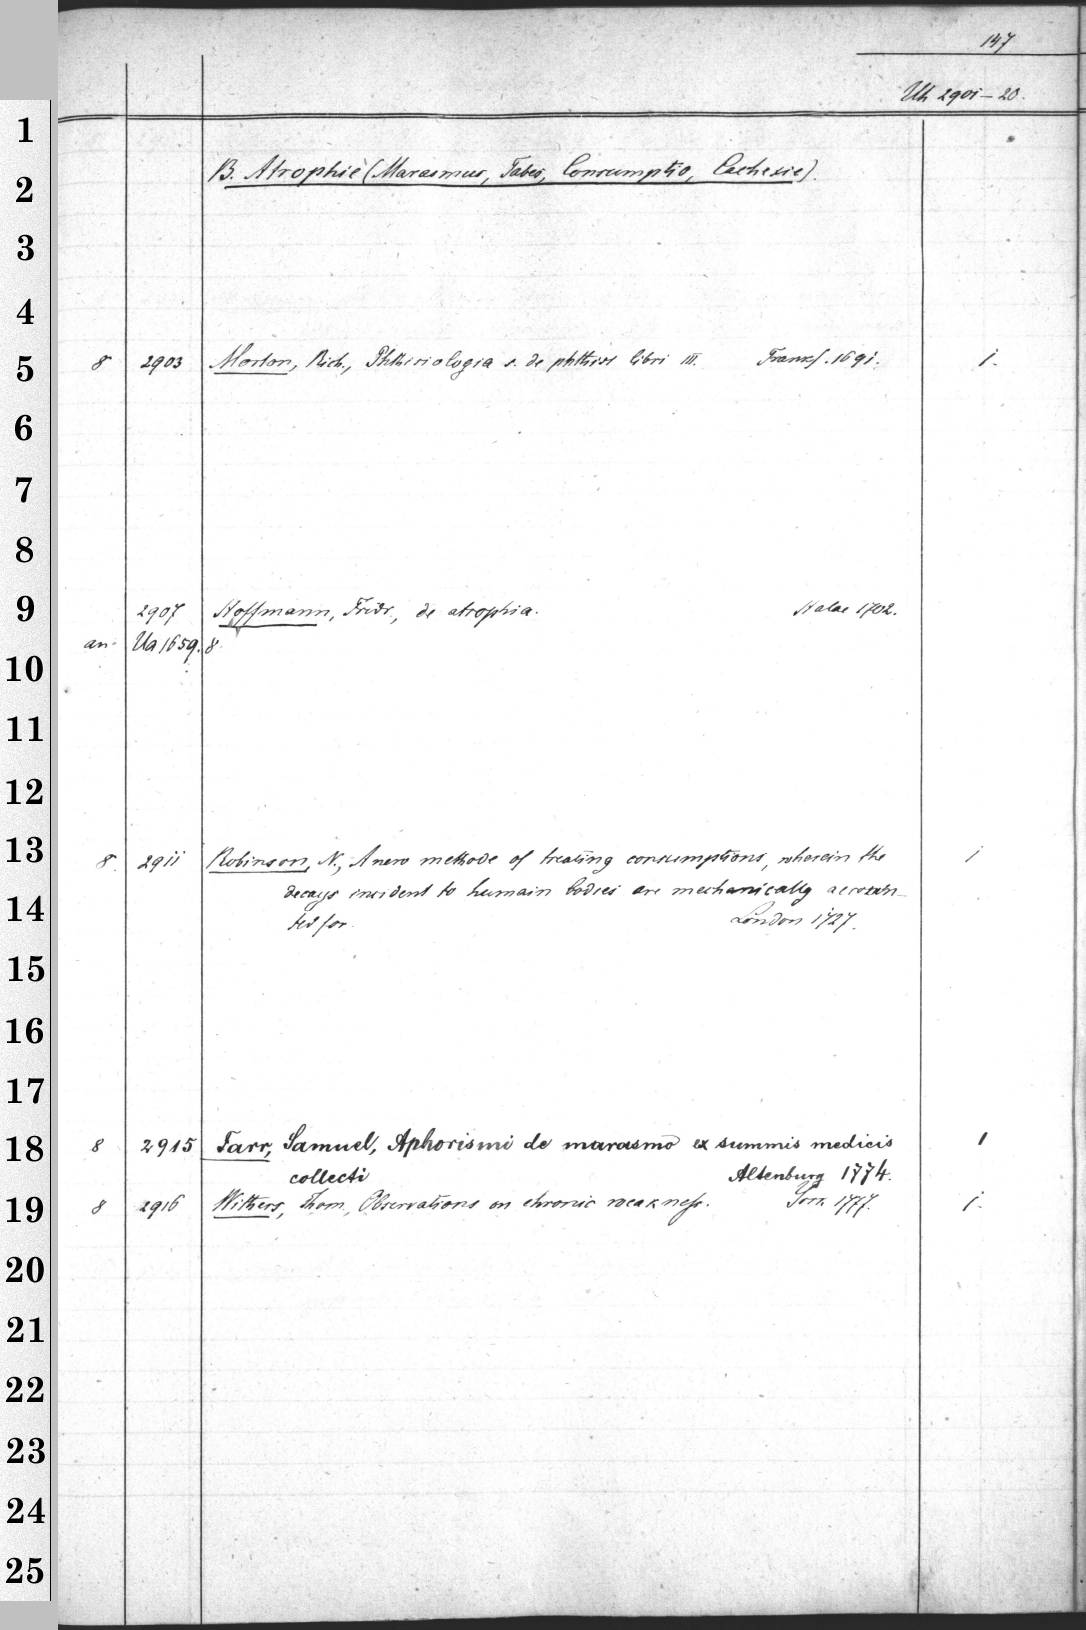 147
Uh 2901-20.
1
B. Atrophie (Marasmus, Tabes, Consumptio, Cachexie).
2
3
4
5 8 2903 Morton, Rich., Phthisiologia s. de phthisi libri III. Frankf. 1691. 1.
6
7
8
9 2907 Hoffmann, Fridr., de atrophia. Halae 1702.
an Ua 1659. 8
10
11
12
13 8. 2911 Robinson, N., A new methode of treating consumptions, wherein the 1
decays incident to humain bodies are mechanically accoun-
14
ted for. London 1727.
15
16
17
18 8 2915 Farr, Samuel, Aphorismi de marasmo ex summis medicis 1
collecti Altenburg 1774.
19 8 2916 Withers, Thom., Observations on chronic weakness. 1777. 1.
20
21
22
23
24
25